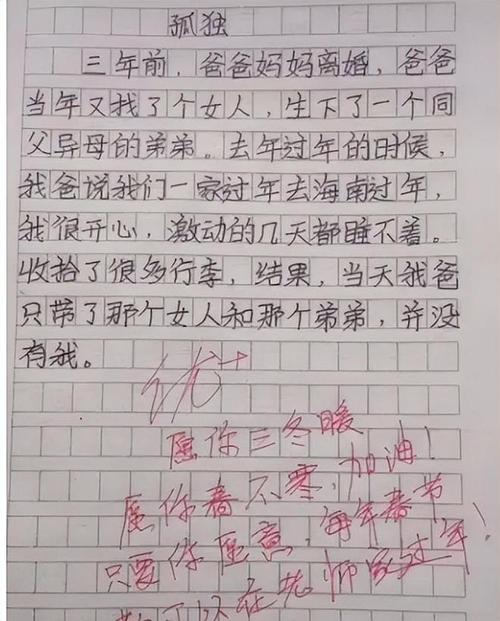 孤独
三年前,爸爸妈妈离婚,爸爸
当年又找了个女人,生下了一个同
父异母的弟弟。去年过年的时候,
我爸说我们一家过年去海南过年,
我很开心,激动的几天都睡不着。
收拾了很多行李,结果,当天我爸
只带了那个女人和那个弟弟,并没
有我。
优+
愿你三冬暖
愿你春不寒,加油!
只要你愿意,每年春节
都可以在老师家过年!